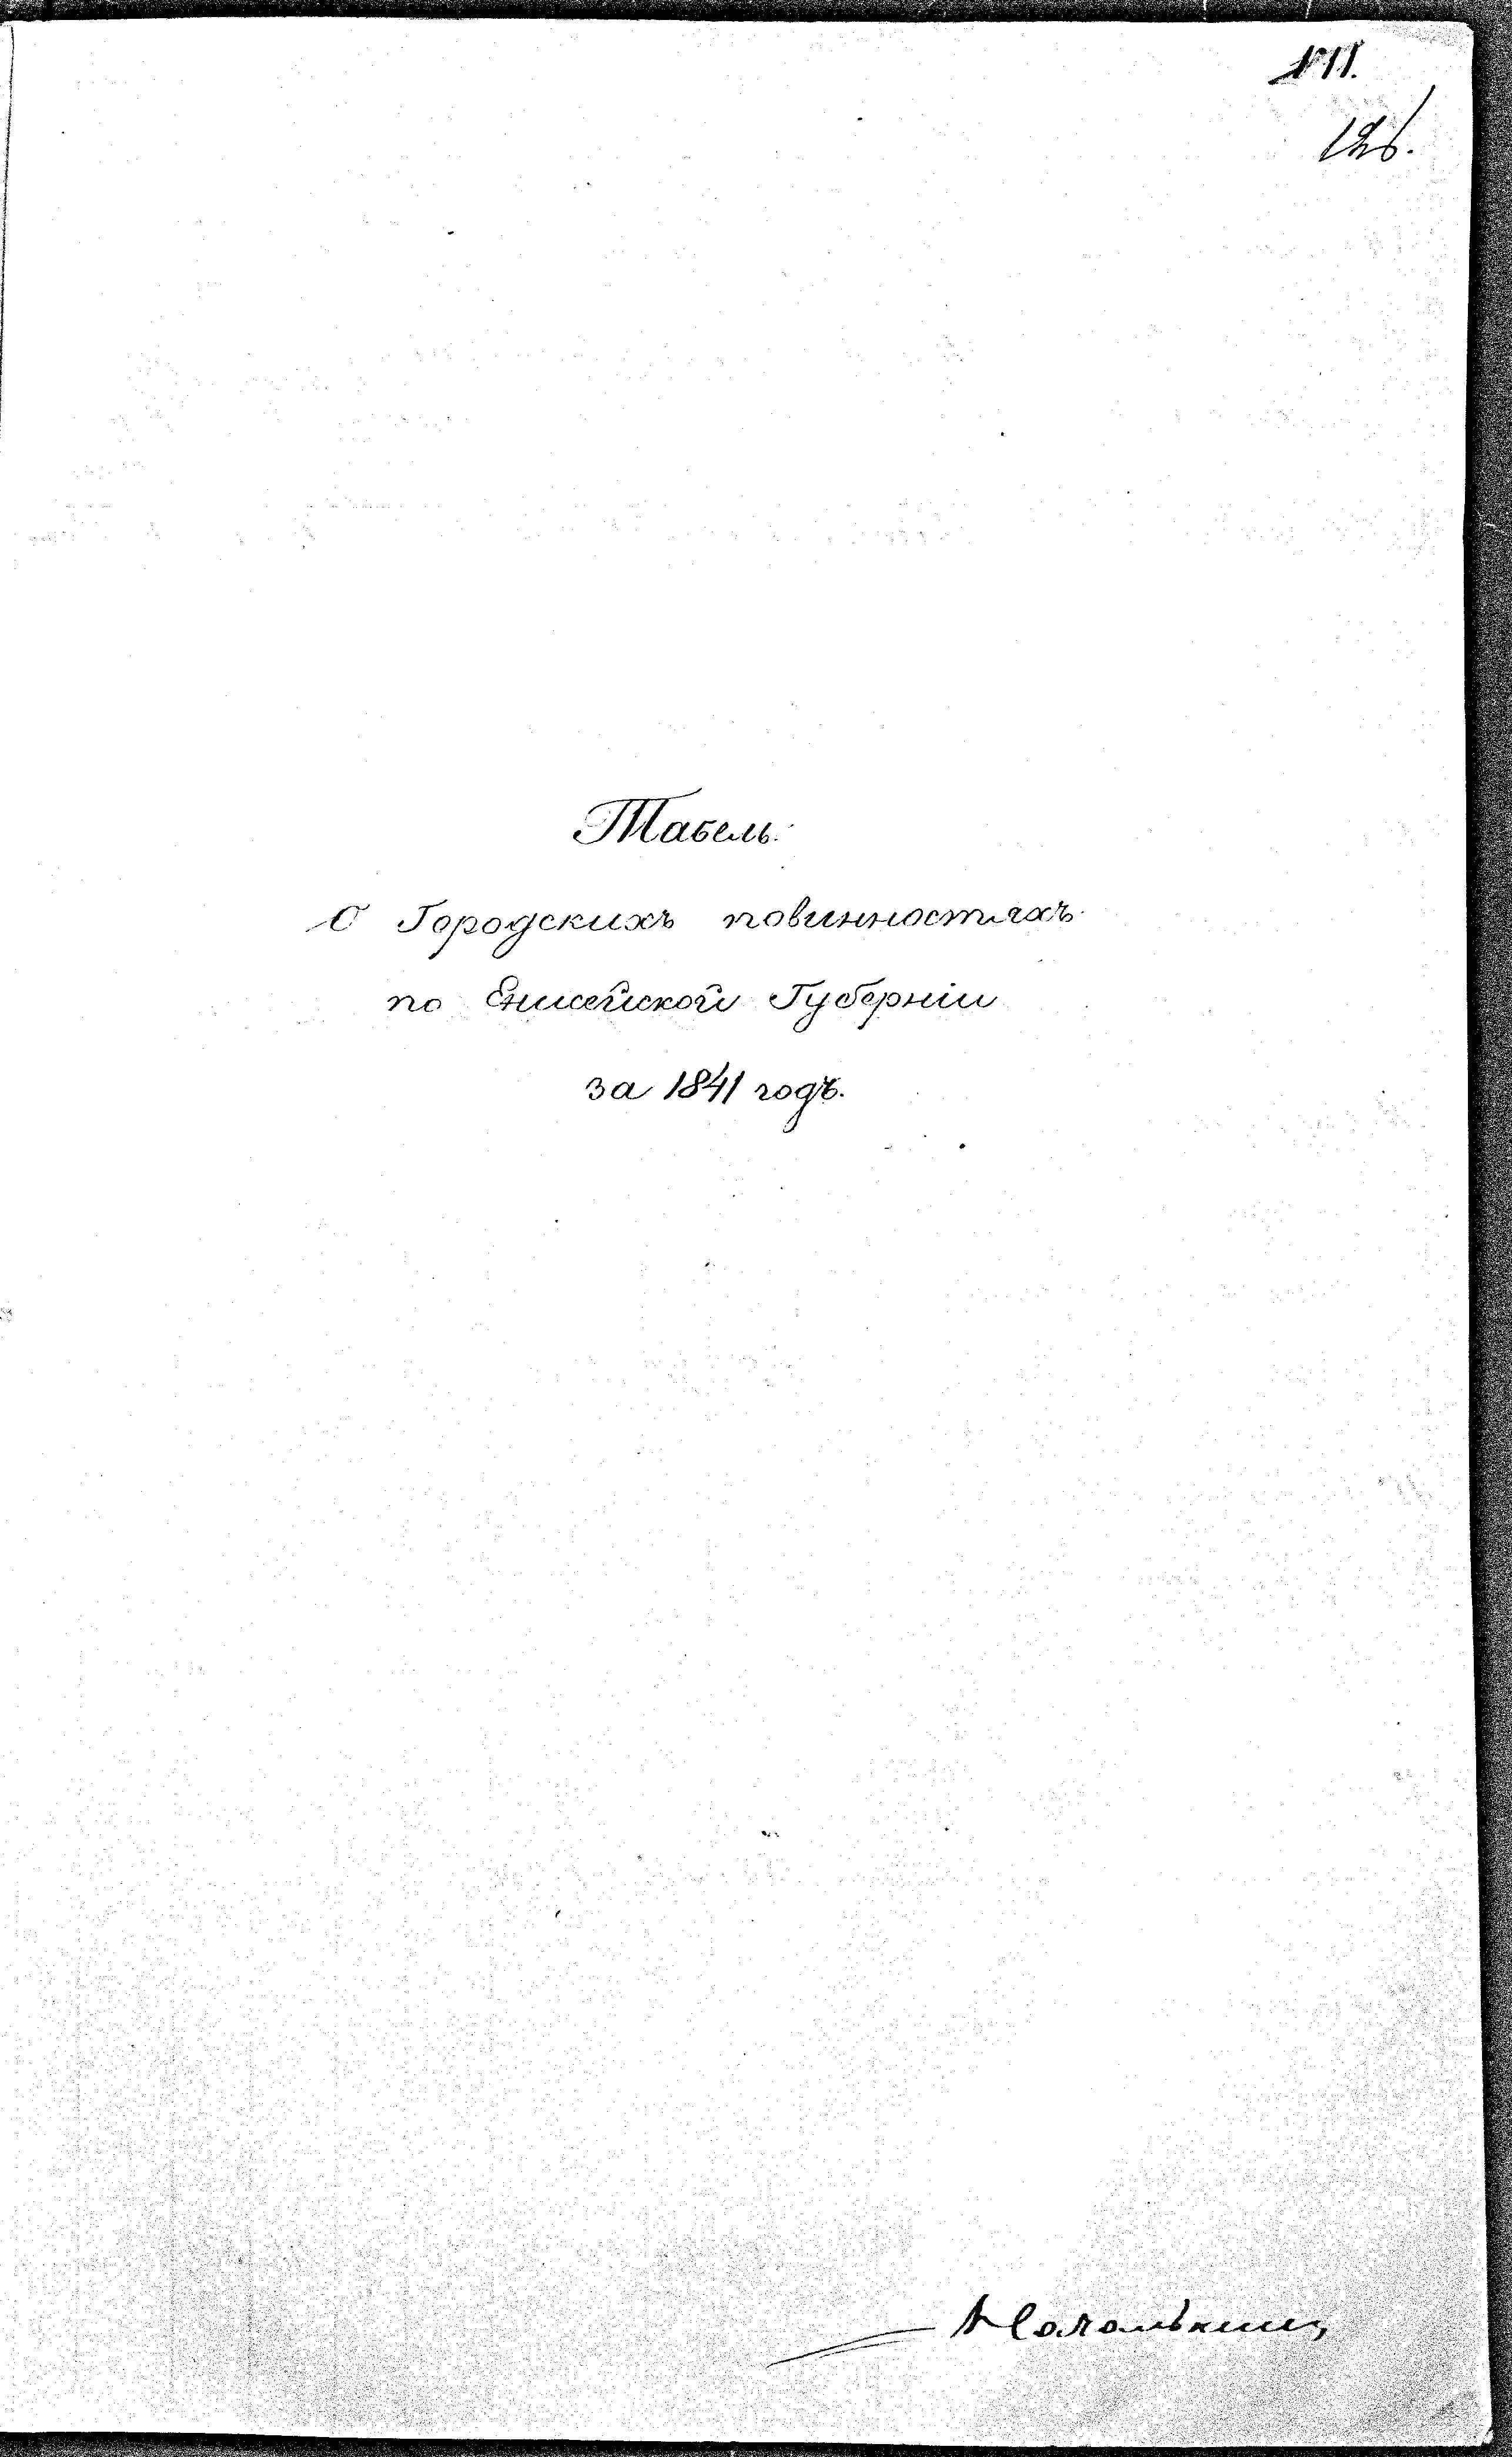 № 11.
126.
Табель.
О Городскихъ повинностяхъ
по Енисейской Губерніи
за 1841 годъ.